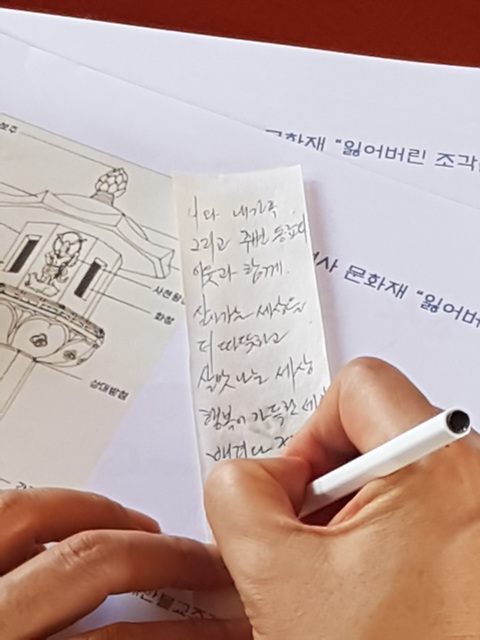 문화재 "잃어버린 조각
보주
사 문화재 "잃어버
사천왕
화창
상대받침
나와 내가족
그리고 주변 동료와
이웃과 함께.
살아가는 세상을
더 따뜻하고
살맛나는 세상
행복이 가득한
불교조